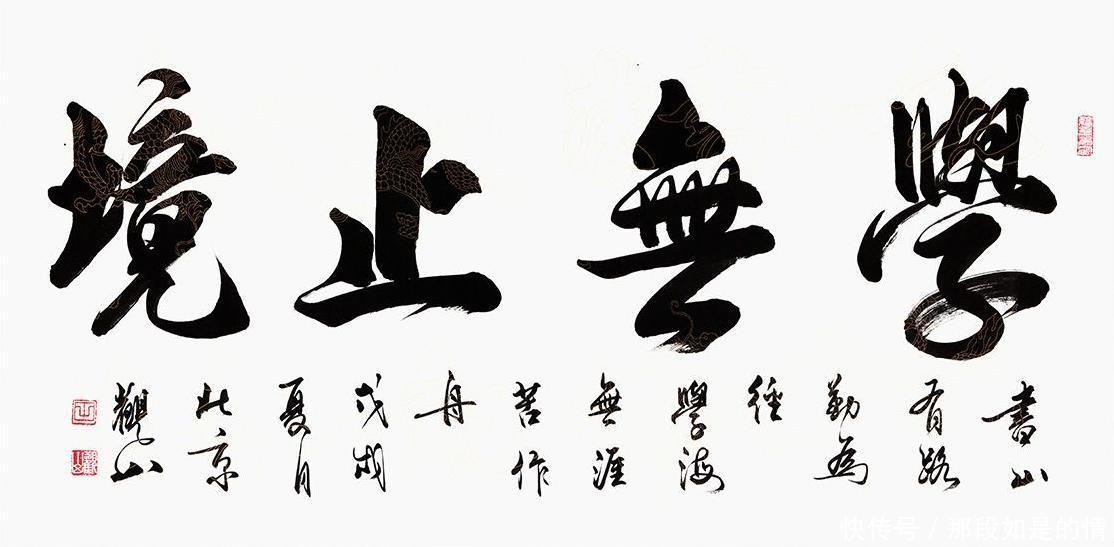 學無止境
書山
有路
勤為
徑
學海
無涯
苦作
舟
戊戌
夏月
北京
觀山
快传号 / 那段如是的情